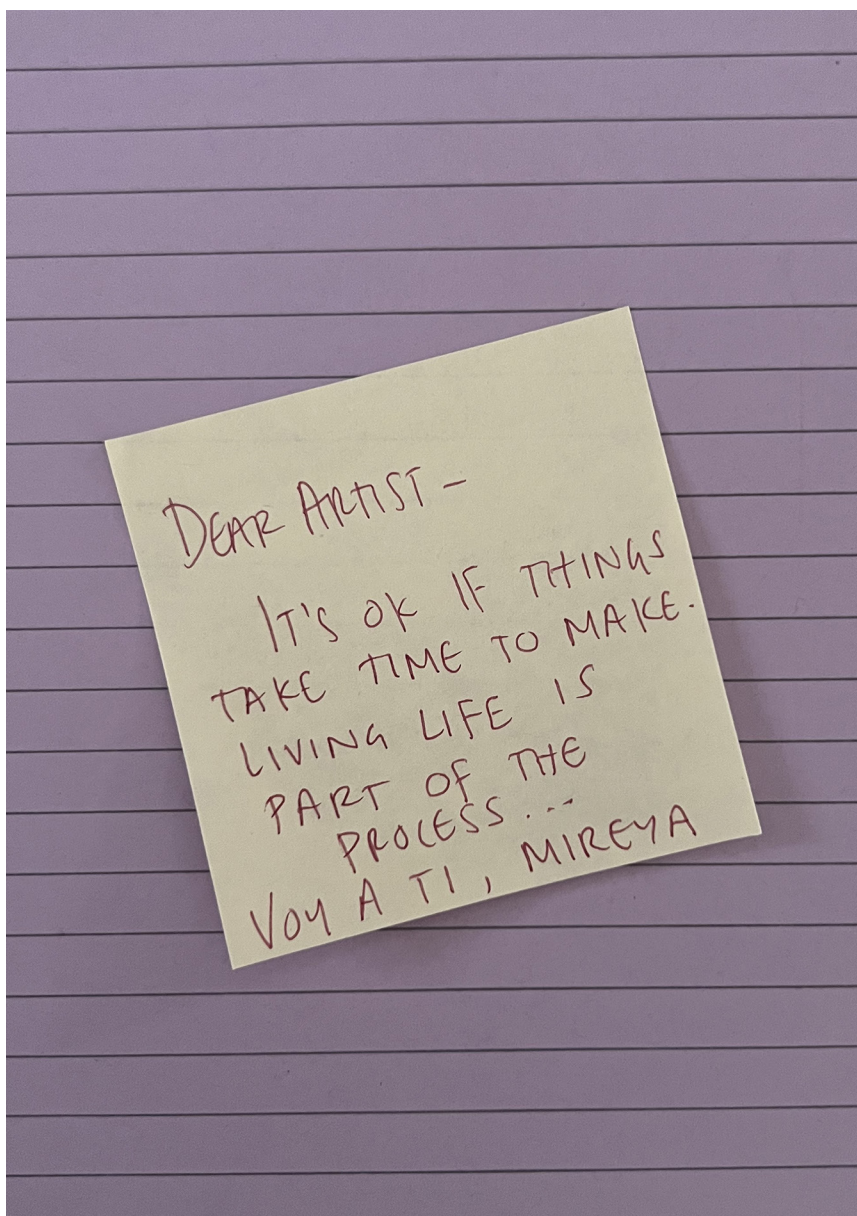 DEAR ARTIST –
IT'S OK IF THINGS
TAKE TIME TO MAKE.
LIVING LIFE IS
PART OF THE
PROCESS...
VOY A TI, MIREYA